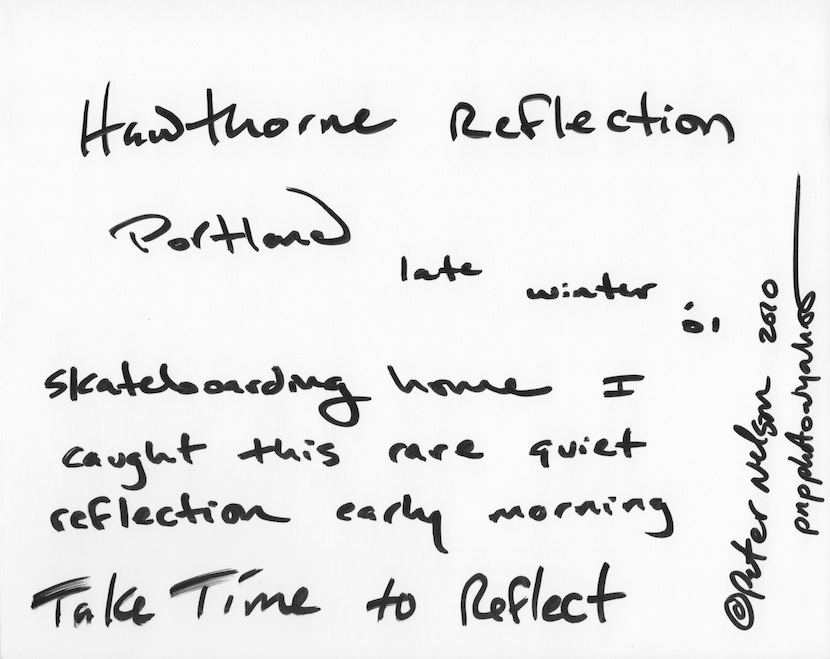 Hawthorne Reflection
Portland
late winter '01
skateboarding home I
caught this rare quiet
reflection early morning
Take Time to Reflect
©Peter Nelson 2010